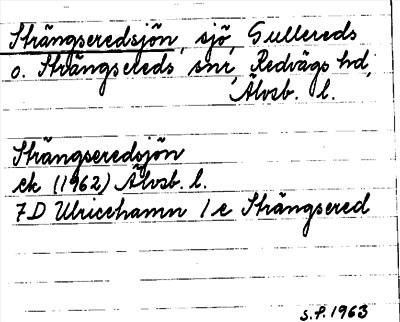 Strängseredsjön, sjö, Gullereds
o. Strängsereds snr, Redvägs hd,
Älvsb. l.
Strängseredsjön
ek (1962) Älvsb. l.
7D Ulricehamn 1 e Strängsered
S.P. 1963